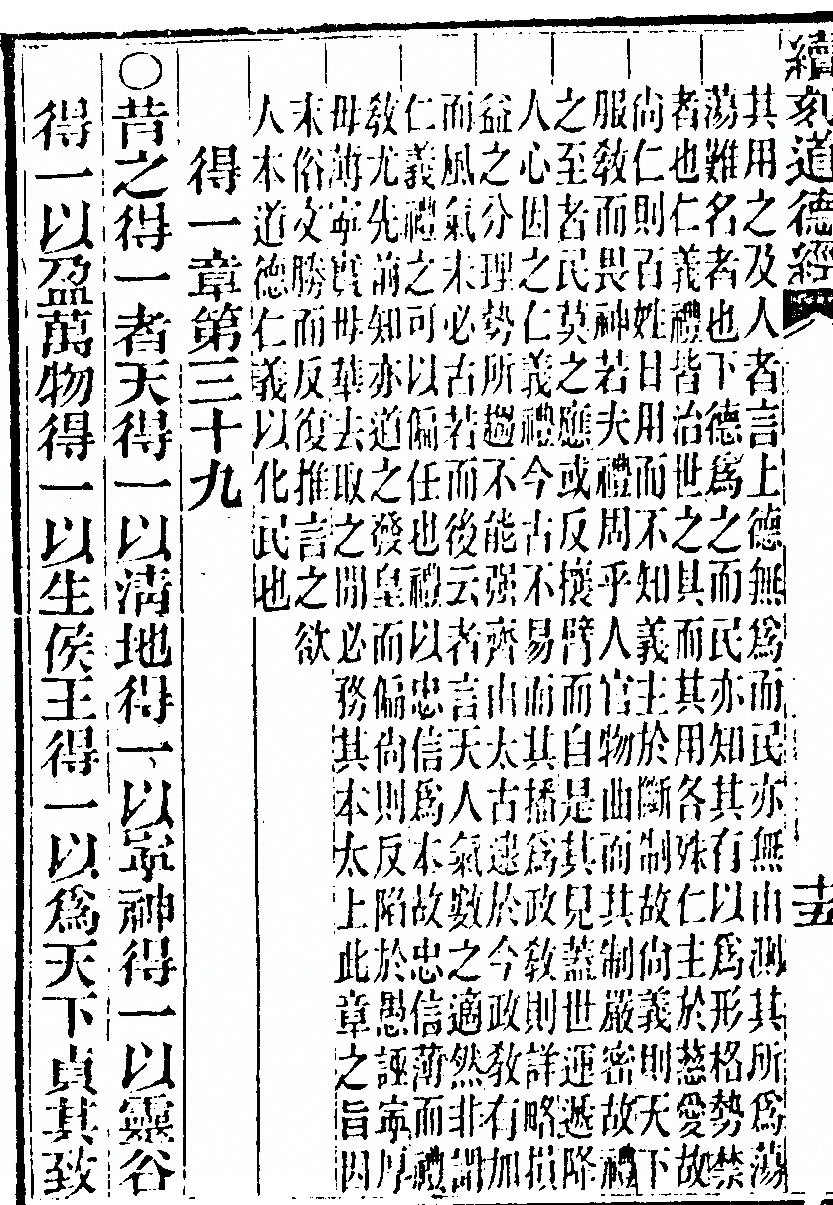 續刻道德經
十五
其用之及人者言上德無爲而民亦無由測其所爲蕩
蕩難名者也下德爲之而民亦知其有以爲形格勢禁
者也仁義禮皆治世之具而其用各殊仁主於慈愛故
尚仁則百姓日用而不知義主於斷制故尚義則天下
服教而畏神若夫禮周乎人官物曲而其制嚴密故禮
之至者民莫之應或反攘臂而自是其兒蓋世運遞降
人心因之仁義禮今古不易而其播爲政教則詳略損
益之分理勢所趨不能强齊由太古逮於今政教有加
而風氣未必古若而後云者言天人氣數之適然非謂
仁義禮之可以偏任也禮以忠信爲本故忠信薄而禮
教尤先前知亦道之發皇而偏尚則反陷於愚誣寧厚
毋薄寧實毋華去取之間必務其本太上此章之旨因
末俗文勝而反復推言之欲
人本道德仁義以化民也
得一章第三十九
○昔之得一者天得一以清地得一以寧神得一以靈谷
得一以盈萬物得一以生侯王得一以爲天下貞其致